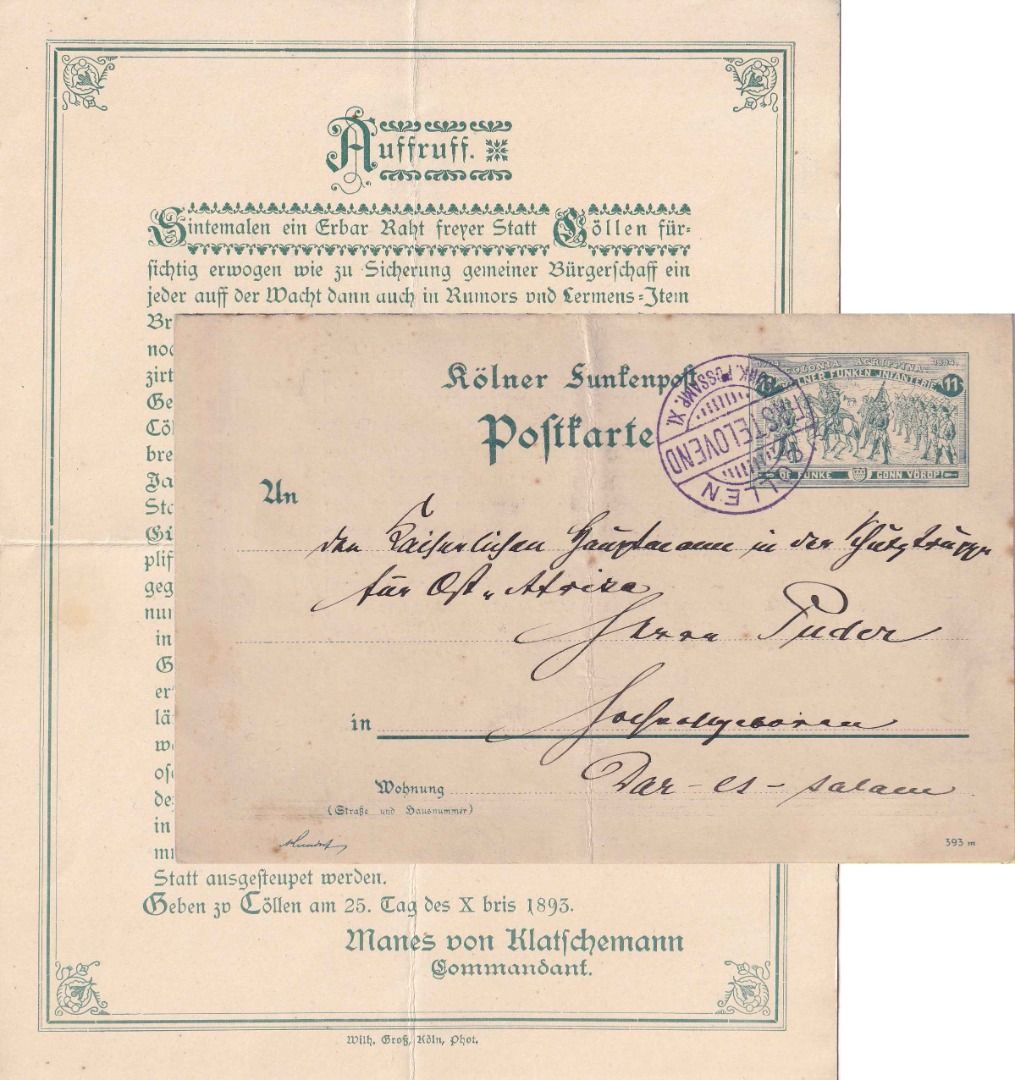 Auffruff.
Sintemalen ein Erbar Raht freyer Statt Cöllen für-
sichtig erwogen wie zu Sicherung gemeiner Bürgerschaff ein
jeder auff der Wacht dann auch in Rumors vnd Lermens-Item
Statt ausgesteupet werden.
Geben zv Cöllen am 25. Tag des X bris 1893.
Manes von Klatschemann
Commandant.
Wilh. Groß, Köln, Phot.
Kölner Funkenpost
Postkarte
COLONIA AGRIPPINA 1894
KÖLNER FUNKEN INFANTERIE 11
DE FUNKE GONN VÖROP!
CÖLLEN
FASTELOVEND
An
den Kaiserlichen Hauptmann in der Schutztruppe
für Ost-Afrika
Herrn Puder
in Hochwohlgeboren
Dar-es-salam
Wohnung
(Straße und Hausnummer)
393 m